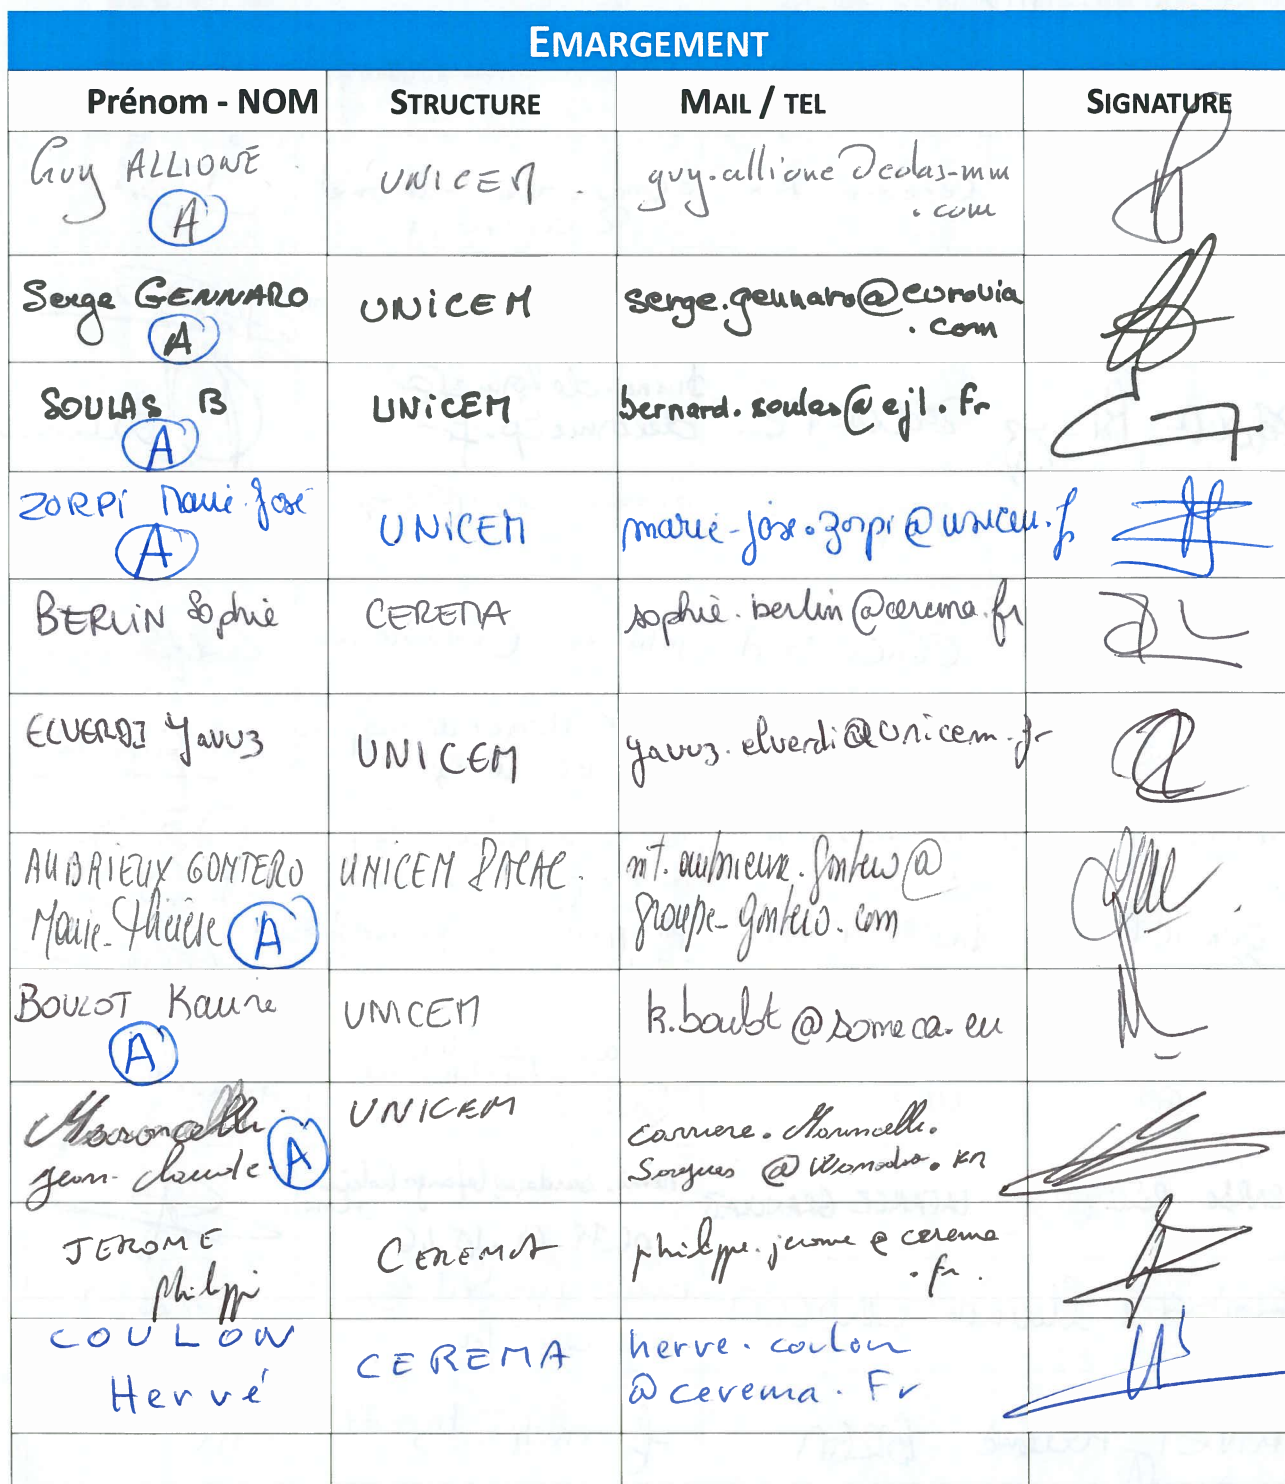 EMARGEMENT
Prénom - NOM STRUCTURE MAIL / TEL SIGNATURE
Guy ALLIONE UNICEM guy.allione@colas-mm
.com
A
Serge GENNARO UNICEM serge.gennaro@eurovia
.com
A
SOULAS B UNICEM bernard.soulas@ejl.fr
A
ZORPI Marie-José UNICEM marie-jose.zorpi@unicem.fr
A
BERLIN Sophie CEREMA sophie.berlin@cerema.fr
ELVERDI Yavuz UNICEM yavuz.elverdi@unicem.fr
AUBRIEUX GONTERO UNICEM PACAC. mt.aubrieux.gontero@
Marie-Thérèse A groupe-gontero.com
BOULOT Karine UNICEM k.boulot@someca.eu
A
Maroncelli UNICEM carriere.Maroncelli.
Jean-Claude A Sorgues @
JEROME CEREMA philippe.jerome@cerema
Philippe .fr.
COULON CEREMA herve.coulon
Hervé @cerema.Fr